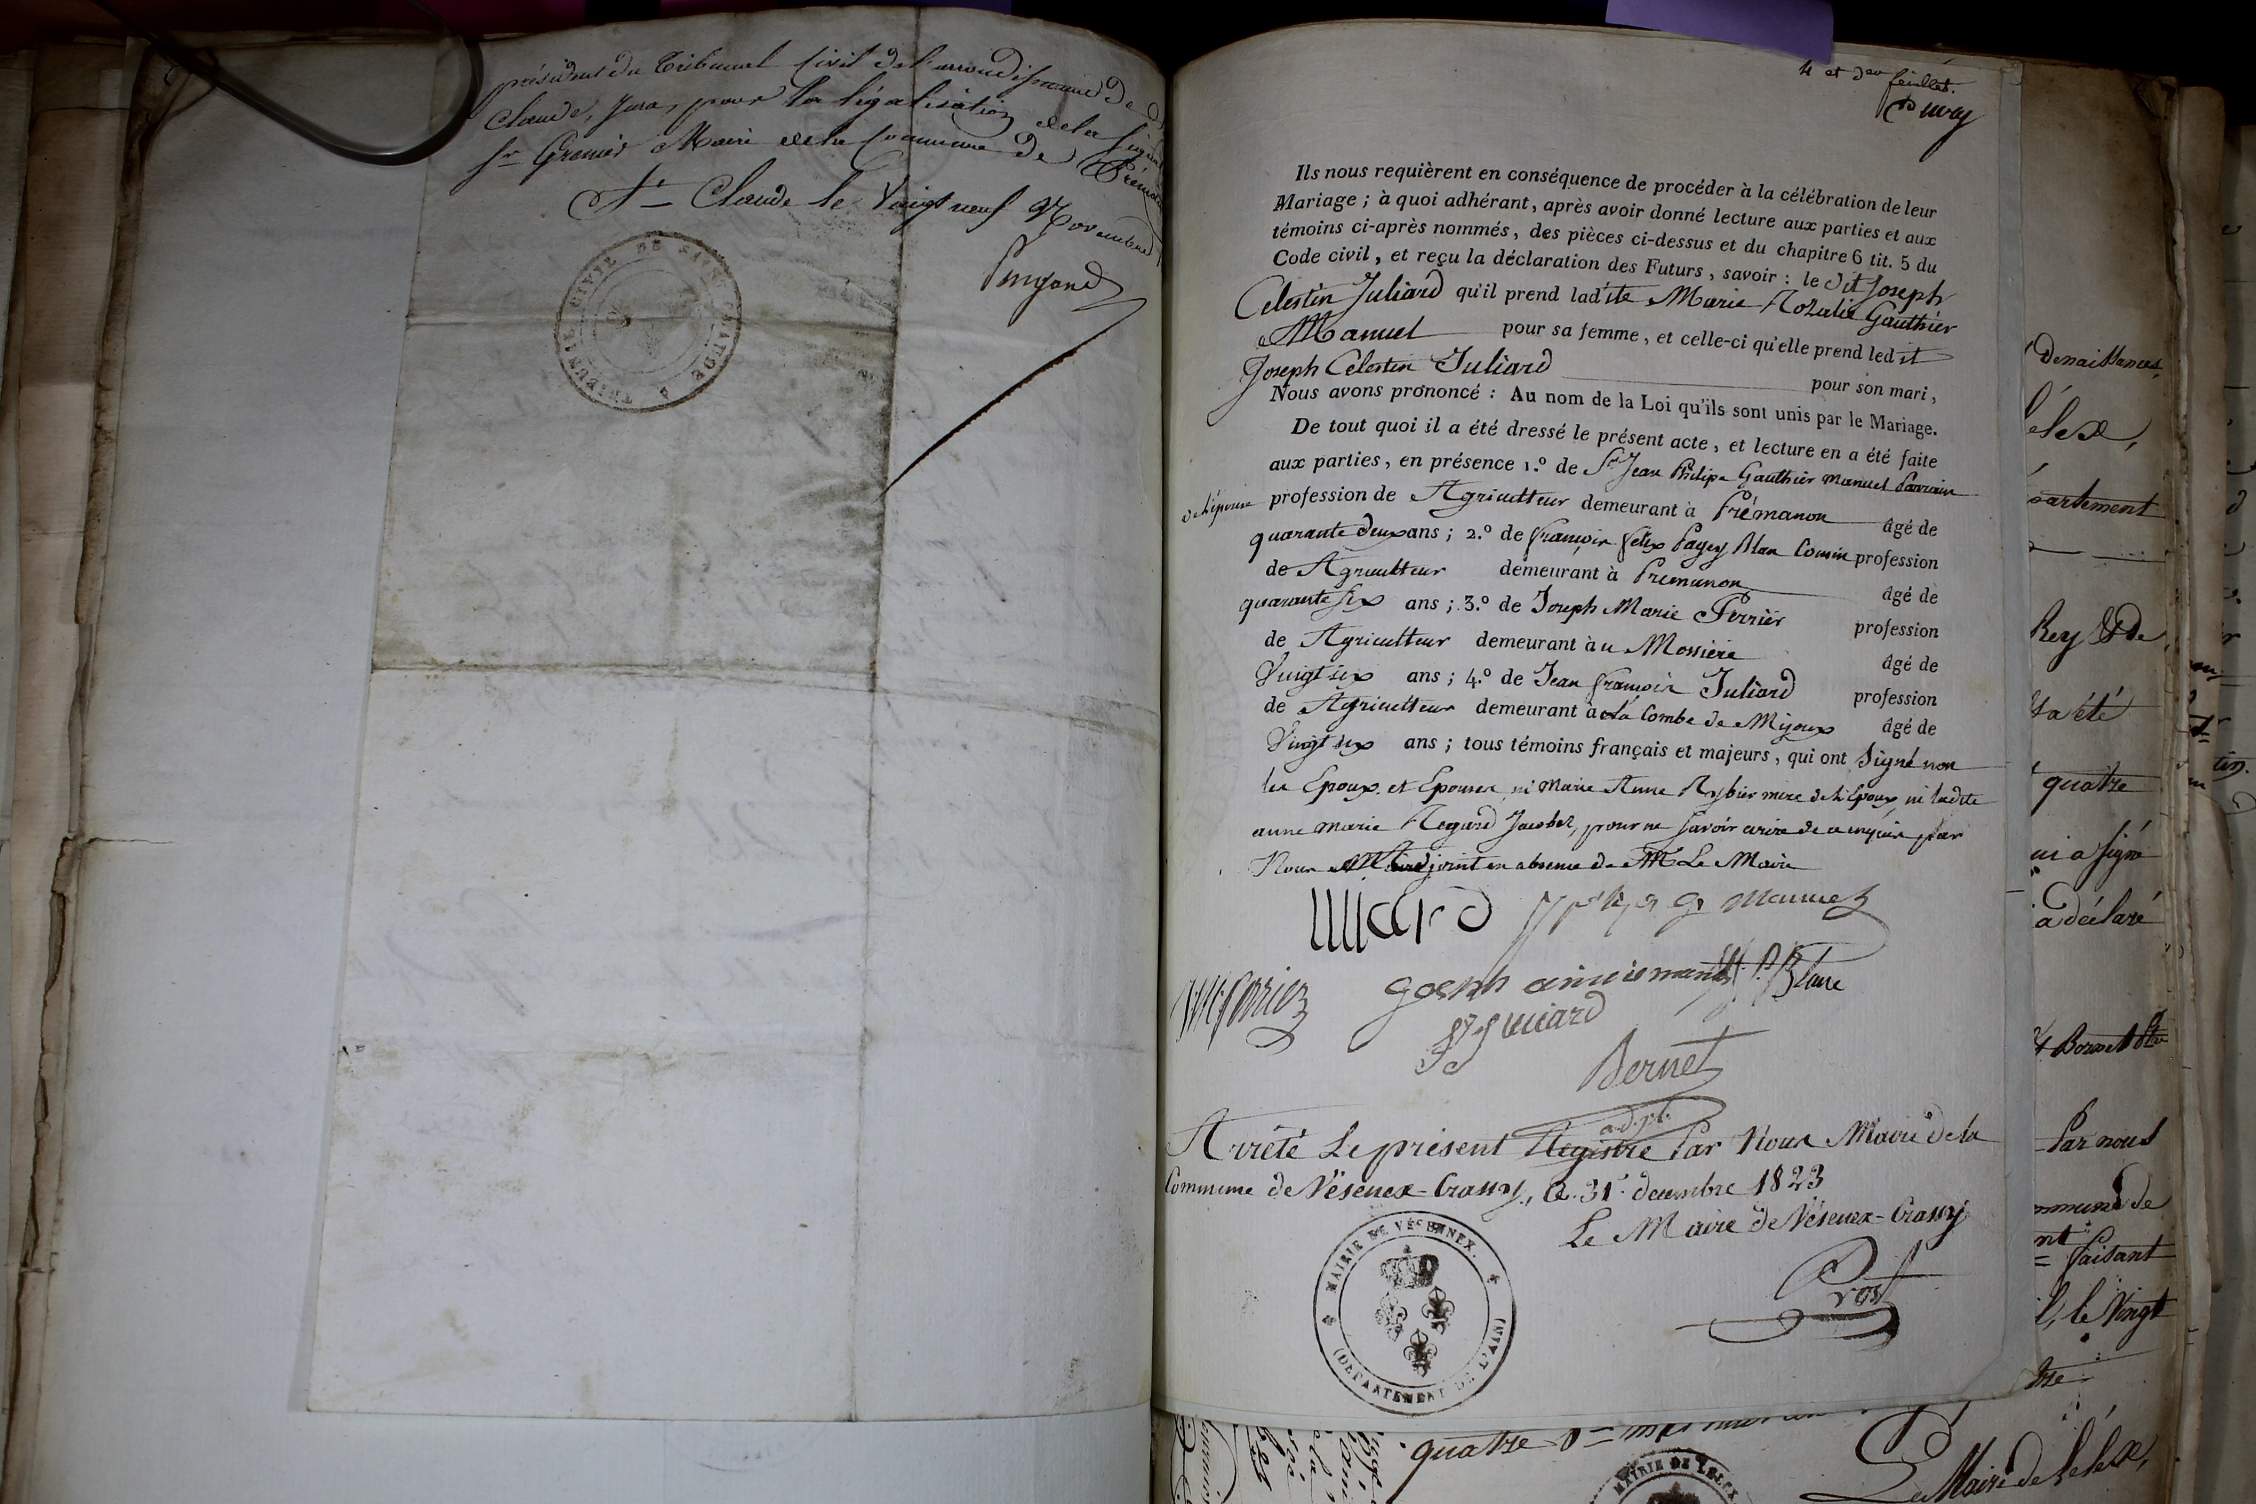 président du Tribunal Civil de l'arrondissement de
Claude, Jura, pour la légalisation de la
Sr Grenier Maire de la Commune de Prémanon
St Claude le Vingt neuf Novembre
TRIBUNAL CIVIL DE SAINT CLAUDE
4 et der feuillet.
Ils nous requièrent en conséquence de procéder à la célébration de leur
Mariage ; à quoi adhérant, après avoir donné lecture aux parties et aux
témoins ci-après nommés, des pièces ci-dessus et du chapitre 6 tit. 5 du
Code civil, et reçu la déclaration des Futurs, savoir : le dit Joseph
Celestin Juliard qu'il prend ladite Marie Rozalie Gauthier
Manuel pour sa femme, et celle-ci qu'elle prend ledit
Joseph Celestin Juliard pour son mari,
Nous avons prononcé : Au nom de la Loi qu'ils sont unis par le Mariage.
De tout quoi il a été dressé le présent acte, et lecture en a été faite
aux parties, en présence 1.º de Sr Jean Philipe Gauthier Manuel Parrain
de l'épouse profession de Agriculteur demeurant à Prémanon âgé de
quarante deux ans ; 2.º de françois felix Paget Blan Cousin profession
de Agriculteur demeurant à Premanon âgé de
quarante six ans ; 3.º de Joseph Marie Perrier profession
de Agriculteur demeurant à u Mossiere âgé de
Vingt six ans ; 4.º de Jean françois Juliard profession
de Agriculteur demeurant à la Combe de Mijoux âgé de
Vingt six ans ; tous témoins français et majeurs, qui ont Signé non
les Epoux et Epouses, ni Marie Anne Rybier mere de l'Epoux, ni ladite
anne marie Regard Jacobez, pour ne savoir ecrire de ce enquis par
Nous adjoint en absence de M Le Maire
Juliard G Manuel
Perrier Joseph P. Blanc
Juliard
Bernet
adjt.
Arrêté Le présent Registre Par Nous Maire de la
Commune de Vésenex-Crassy, le 31. decembre 1823
Le Maire de Vésenex-Crassy
Prost
MAIRIE DE VÉSENNEX. (DÉPARTEMENT DE L'AIN)
De naissances,
Lélex,
partement
Rey
a été
quatre
ui a signé
a déclaré
Par nous
ommune de
faisant
il, le Vingt
quatre
MAIRIE DE LELEX
Le Maire de Lélex,